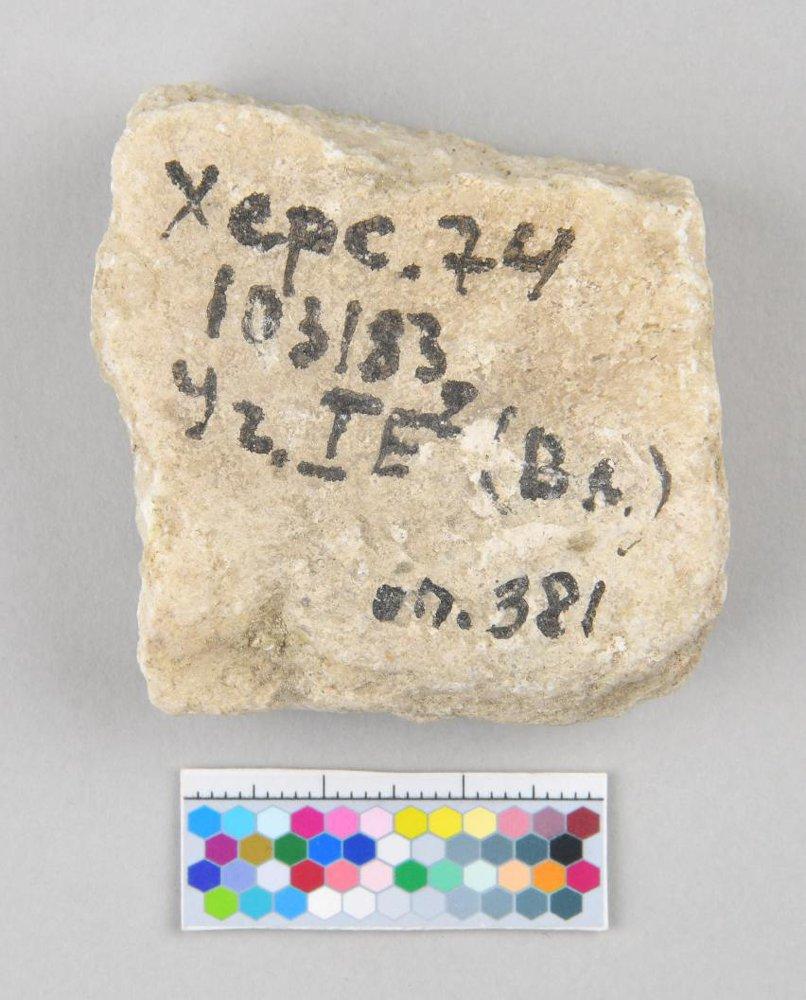 Херс. 74
103/83
Уг. IE² (Вл.)
оп. 381